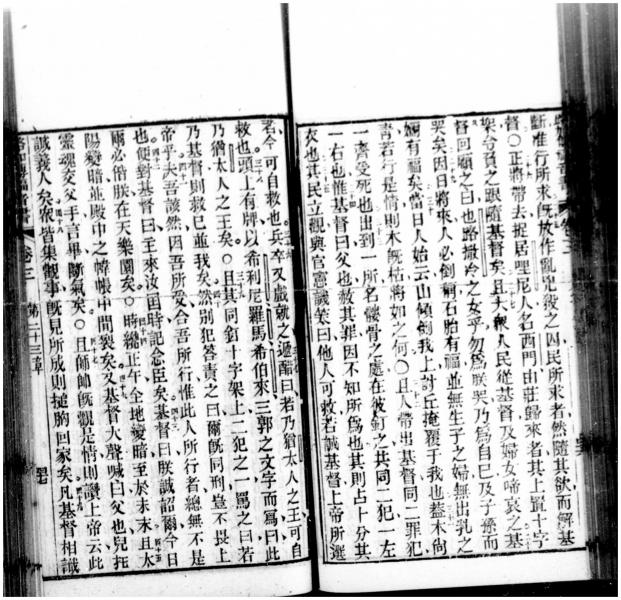 斷准行所求旣放作亂兇彼之囚民所求者然隨其欲而解基
督○正將帶去捉居哩尼人名西門由莊歸來者其上置十字
架台負之跟隨基督矣且大衆人民從基督及婦女啼哀之基
督回顧之曰也路撒冷之女乎勿爲朕哭乃爲自己及子孫而
哭矣因日將來人必倒嗣石胎有福並無生子之婦無出乳之
嬭有福矣當日人始云山傾倒我上討丘掩覆于我也蓋木尙
靑若行是情則木旣枯將如之何○且人帶出基督同二罪犯
一齊受死也出到一所名髏骨之處在彼釘之共同二犯一左
一右也惟基督曰父也赦其罪因不知所爲也其則占十分其
衣也其民立觀與官憲誠笑曰他人可救若誠基督上帝所選
者今可自救也兵卒又戲就之遞醋曰若乃猶太人之王可自
救也頭上有牌以希利尼羅馬希伯來三郭之文字而爲曰此
乃猶太人之王矣○且其同釘十字架上二犯之一罵之曰若
乃基督則救己並我矣然別犯答責之曰爾旣同刑豈不畏上
帝乎夫吾該然因吾所受合吾所行惟此人所行者總無不是
也便對基督曰主來汝囯時記念臣矣基督曰朕誠詔爾今日
爾必偕朕在天樂園矣○時纔正午全地變暗至於未末且太
陽變暗並殿中之幃帳中間裂矣又基督大聲喊曰父也兒托
靈魂交父手言畢斷氣矣○且師帥旣觀是情則讚上帝云此
誠義人矣衆皆集觀事旣見所成則搥胸回家矣凡基督相識
卷三 第二十三章